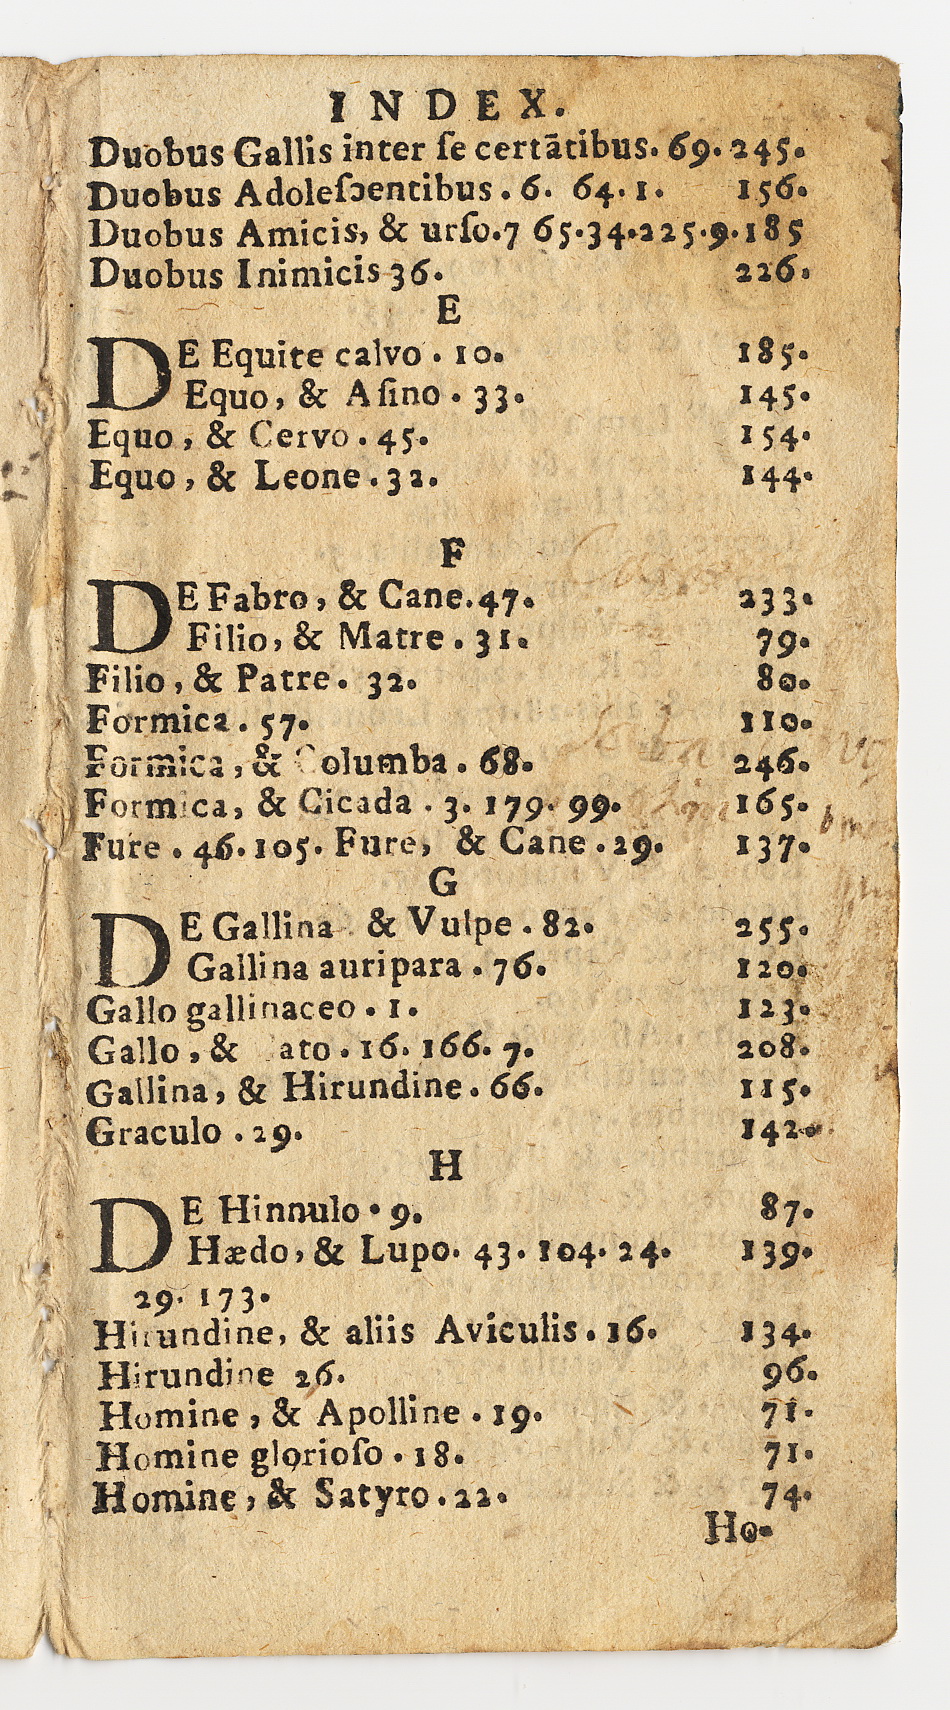 INDEX.
Duobus Gallis inter ſe certātibus. 69. 245.
Duobus Adoleſcentibus. 6. 64. 1. 156.
Duobus Amicis, & urſo. 7 65. 34. 225. 9. 185
Duobus Inimicis 36. 226.
E
DE Equite calvo. 10. 185.
Equo, & Aſino. 33. 145.
Equo, & Cervo. 45. 154.
Equo, & Leone. 32. 144.
F
DE Fabro, & Cane. 47. 233.
Filio, & Matre. 31. 79.
Filio, & Patre. 32. 80.
Formica. 57. 110.
Formica, & Columba. 68. 246.
Formica, & Cicada. 3. 179. 99. 165.
Fure. 46. 105. Fure, & Cane. 29. 137.
G
DE Gallina & Vulpe. 82. 255.
Gallina auripara. 76. 120.
Gallo gallinaceo. 1. 123.
Gallo, & ato. 16. 166. 7. 208.
Gallina, & Hirundine. 66. 115.
Graculo. 29. 142.
H
DE Hinnulo. 9. 87.
Hædo, & Lupo. 43. 104. 24. 139.
29. 173.
Hirundine, & aliis Aviculis. 16. 134.
Hirundine 26. 96.
Homine, & Apolline. 19. 71.
Homine glorioſo. 18. 71.
Homine, & Satyro. 22. 74.
Ho-